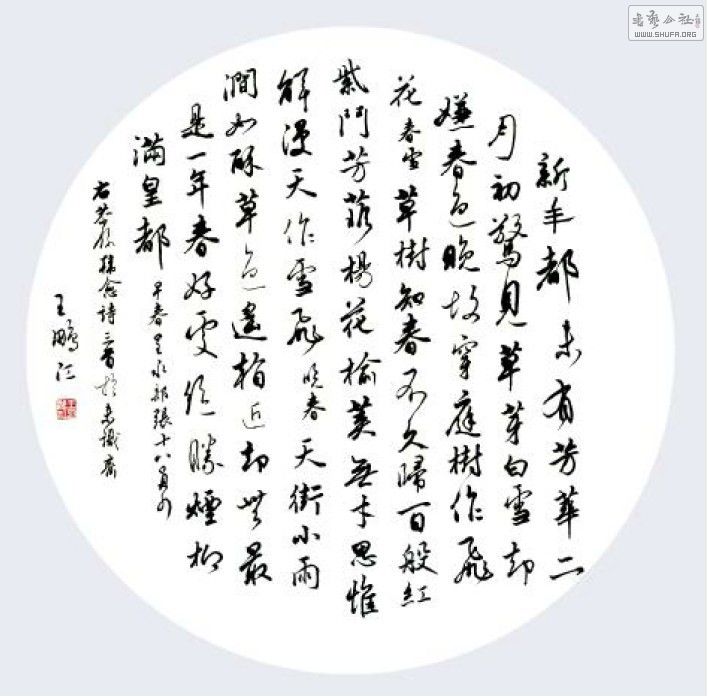 新年都未有芳華二
月初驚見草芽白雪却
嫌春色晚故穿庭樹作飛
花春雪草樹知春不久歸百般紅
紫鬥芳菲楊花榆莢無才思惟
解漫天作雪飛晚春天街小雨
潤如酥草色遙看近却無最
是一年春好處絕勝煙柳
滿皇都早春呈水部張十八員外
右恭錄韓愈詩三首於未識齋
王鵬江
書藝公社
WWW.SHUFA.ORG